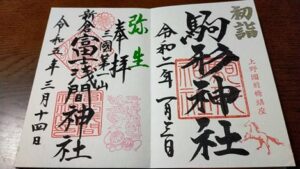 初詣
上野國前橋鎮座
駒形神社
令和二年一月三日
弥生
奉拝
三國第一山
新倉富士浅間神社
令和五年三月十四日